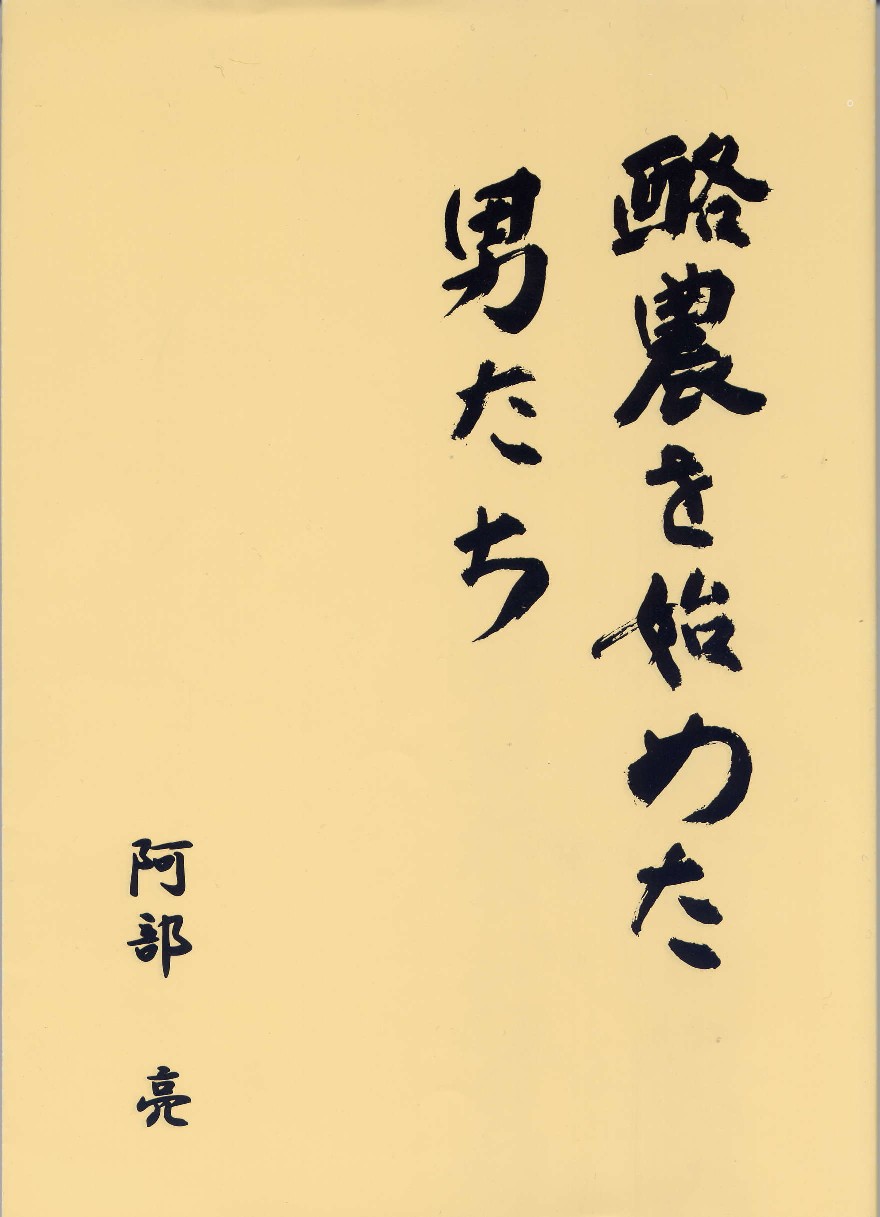 酪農を始めた
男たち
阿部 亮